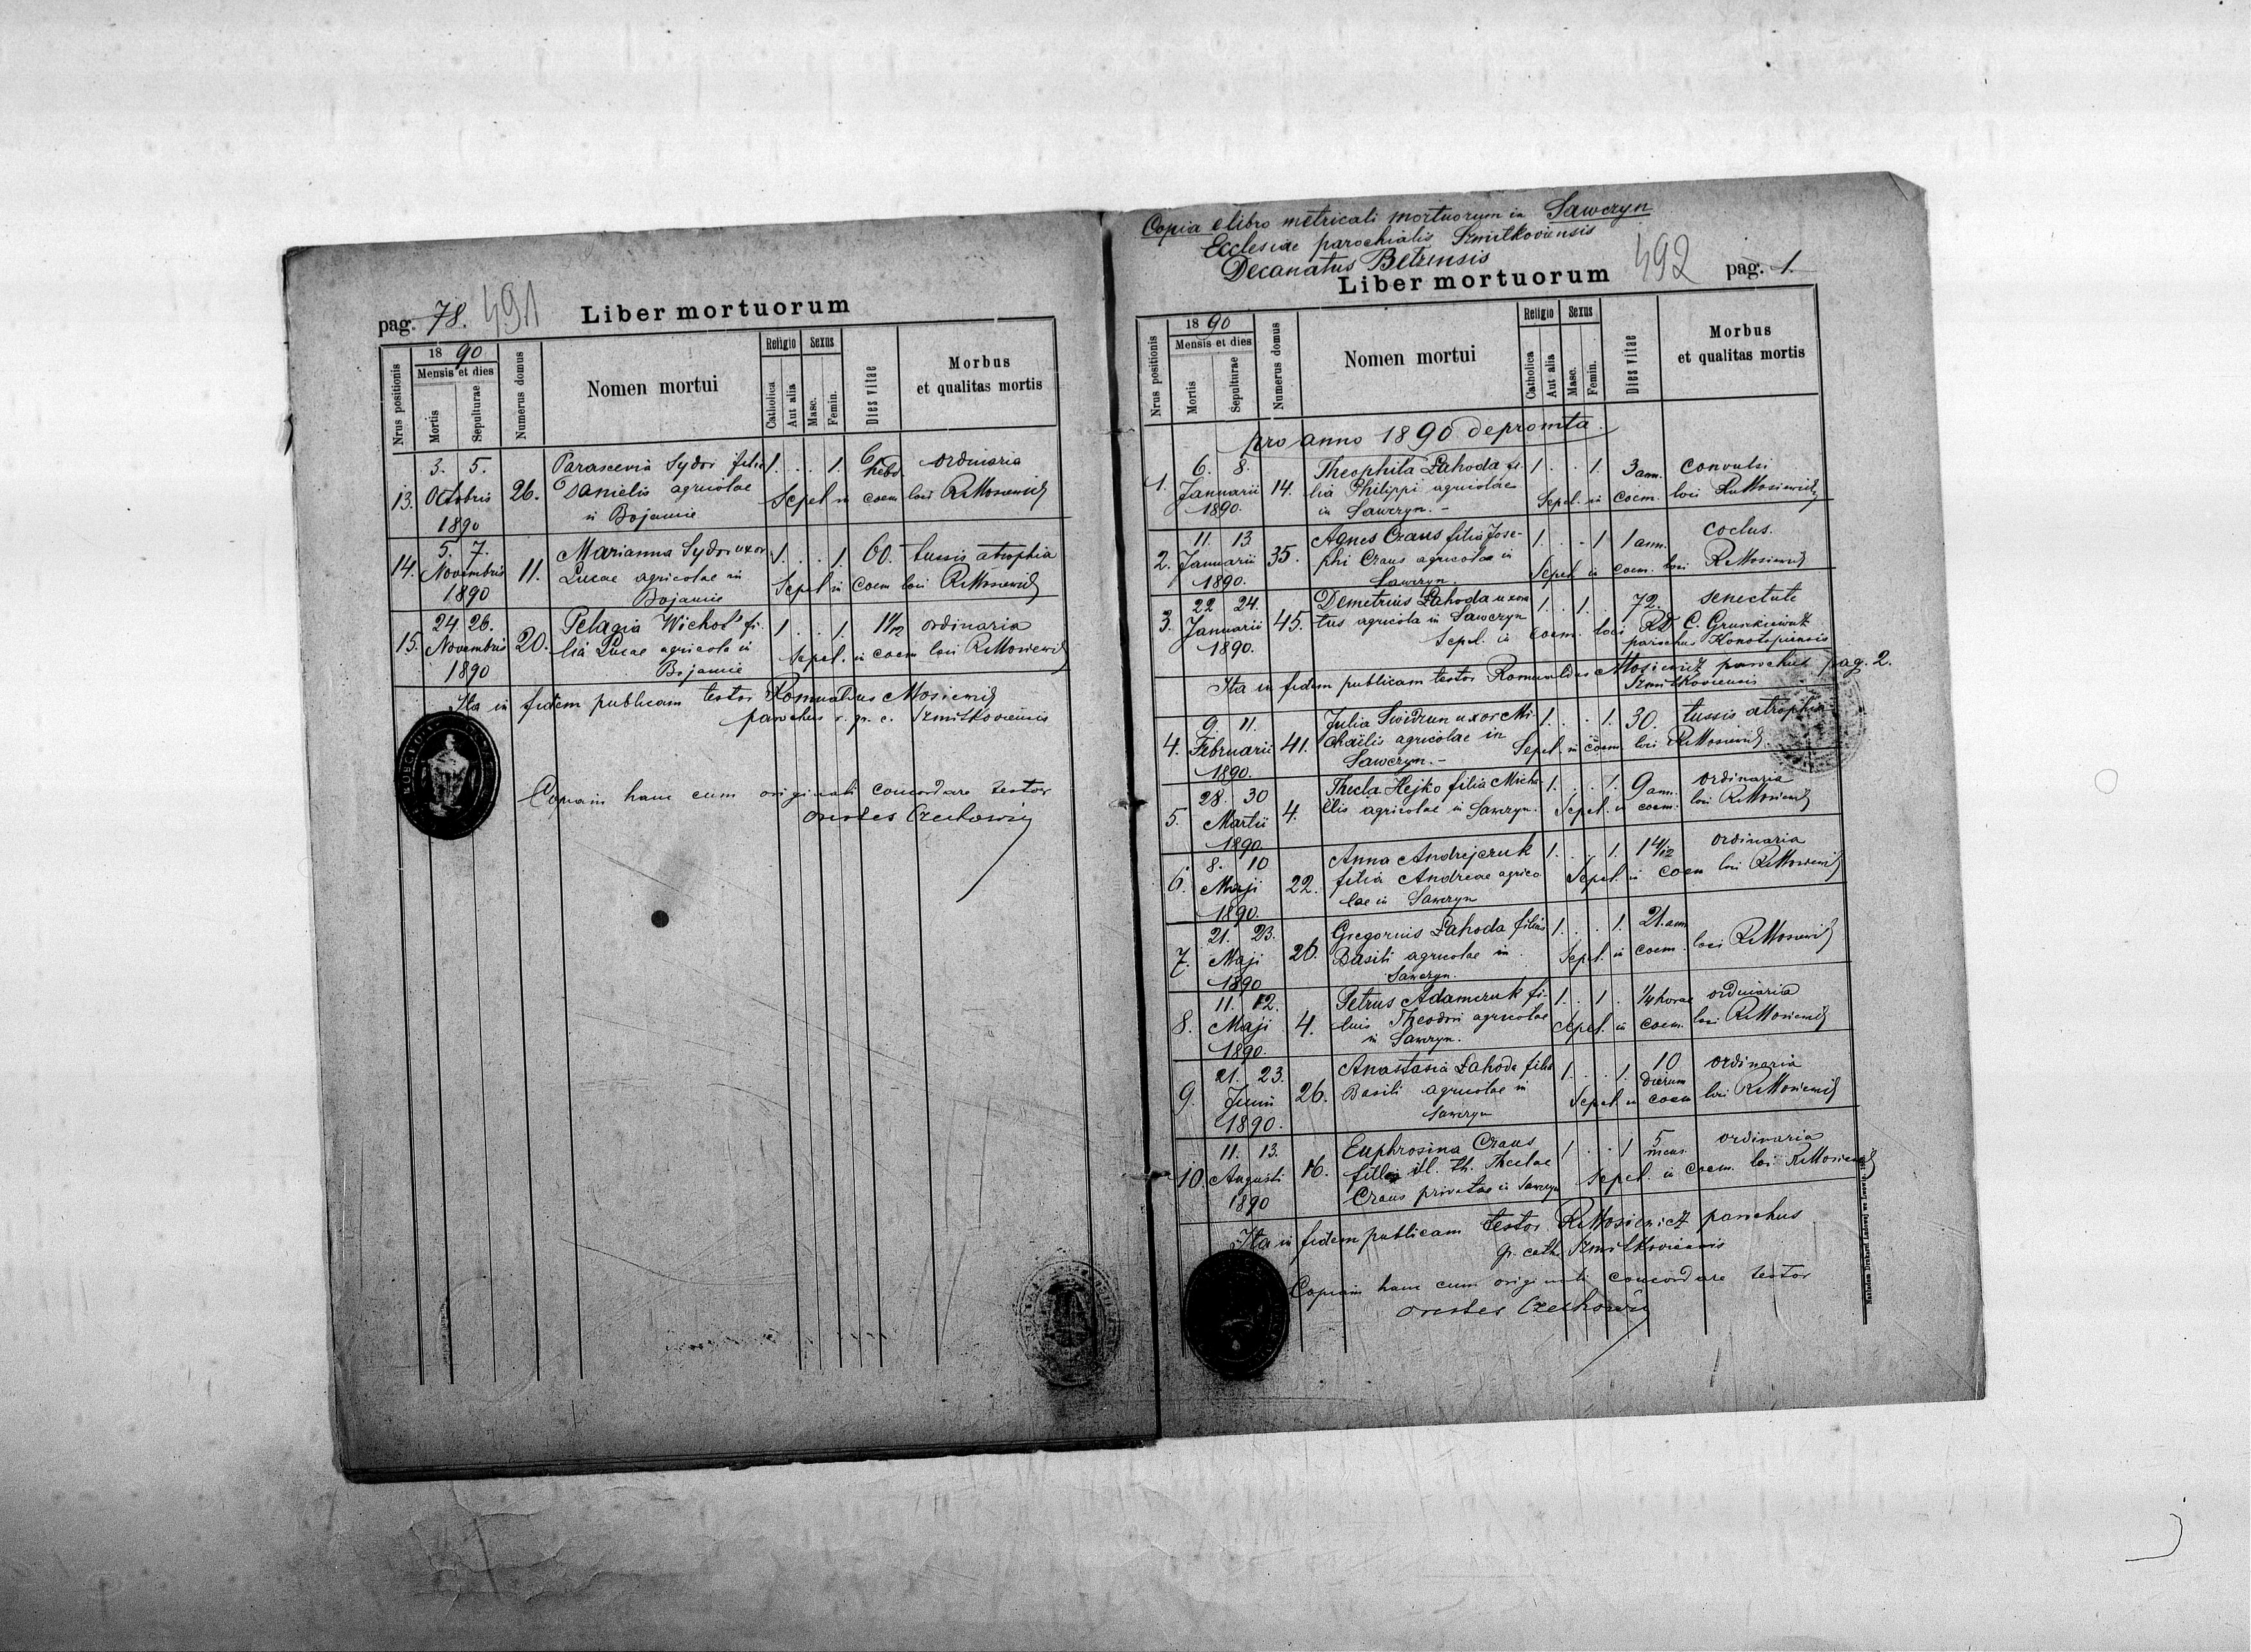 pag. 78. 491 Liber mortuorum
Nrus positionis
1890
Mensis et dies
Mortis
Sepulturae
Numerus domus
Nomen mortui
Religio
Catholica
Aut alia
Sexus
Masc.
Femin.
Dies vitae
Morbus
et qualitas mortis
3. 5. Parascevia Sydor filia 1. . . 1. 6 hebd. ordinaria
13. Octobris 26. Danielis agricolae Sepel. in coem. loci RMosiewicz
1890 in Bojanie
5. 7. Marianna Sydor uxor 1. . . 1. 60. tussis atrophia
14. Novembris 11. Lucae agricolae in Sepel. in coem. loci RMosiewicz
1890 Bojanie
24 26. Pelagia Wichot fi- 1. . . 1. 1 1/12 ordinaria
15. Novembris 20. lia Lucae agricola in Sepel. in coem loci RMosiewicz
1890 Bojanie
Ita in fidem publicam testor Romualdus Mosiewicz
parochus r. gr. c. Szmitkoviensis
Copiam hanc cum originali concordare testor
Orestes Czechowicz
Copia e libro metricali mortuorum in Sawczyn
Ecclesiae parochialis Szmitkoviensis
Decanatus Belzensis
Liber mortuorum 492 pag. 1.
Nrus positionis
1890
Mensis et dies
Mortis
Sepulturae
Numerus domus
Nomen mortui
Religio
Catholica
Aut alia
Sexus
Masc.
Femin.
Dies vitae
Morbus
et qualitas mortis
pro anno 1890 depromta.
6. 8. Theophila Łahoda fi- 1. . . 1. 3 ann. convulsi
1. Januarii 14. lia Philippi agricolae Sepel. in coem. loci RMosiewicz
1890. in Sawczyn. -
11. 13 Agnes Craus filia Jose- 1. . . 1 1 ann. coclus.
2. Januarii 35. phi Craus agricolae in Sepel. in coem. loci RMosiewicz
1890. Sawczyn.
22 24. Demetrius Łahoda uxora 1. . 1. . 72. senectute
3. Januarii 45. tus agricola in Sawczyn RD C. Gruszkiewicz
1890. Sepel. in coem. loci parochus Konotopiensis
Ita in fidem publicam testor Romualdus Mosiewicz parochus pag. 2.
Szmitkoviensis
9. 11. Julia Swidrun uxor Mi 1. . . 1. 30. tussis atrophia
4. Februarii 41. chaëlis agricolae in Sepel. in coem. loci RMosiewicz
1890. Sawczyn. -
28. 30 Thecla Hejko filia Micha- 1. . . 1. 9 ann. ordinaria
5. Martii 4. ëlis agricolae in Sawczyn. Sepel. in coem. loci RMosiewicz
1890
8. 10 Anna Andrejczuk 1. . . 1. 1 4/12 ordinaria
6. Maji 22. filia Andreae agrico Sepel. in coem loci RMosiewicz
1890. lae in Sawczyn
21. 23. Gregorius Łahoda filius 1. . . 1. 21. ann
7. Maji 26. Basili agricolae in Sepel. in coem. loci RMosiewicz
1890 Sawczyn.
11. 12. Petrus Adamczuk fi- 1. . 1. . 1/4 horae ordinaria
8. Maji 4. lius Theodori agricolae Sepel. in coem. loci RMosiewicz
1890. in Sawczyn.
21. 23. Anastasia Łahoda filia 1. . . 1. 10 dierum ordinaria
9. Junii 26. Basili agricolae in Sepel. in coem loci RMosiewicz
1890. Sawczyn
11. 13. Euphrosina Craus 1 . . 1 5 mens. ordinaria
10. Augusti 16. filia ill. th. Theclae Sepel. in coem. loci RMosiewicz
1890 Craus privatae in Sawczyn
Ita in fidem publicam testor RMosiewicz parochus
gr. cath. Szmitkoviensis
Copiam hanc cum originali concordare testor
Orestes Czechowicz
Nakładem Drukarni Ludowej we Lwowie